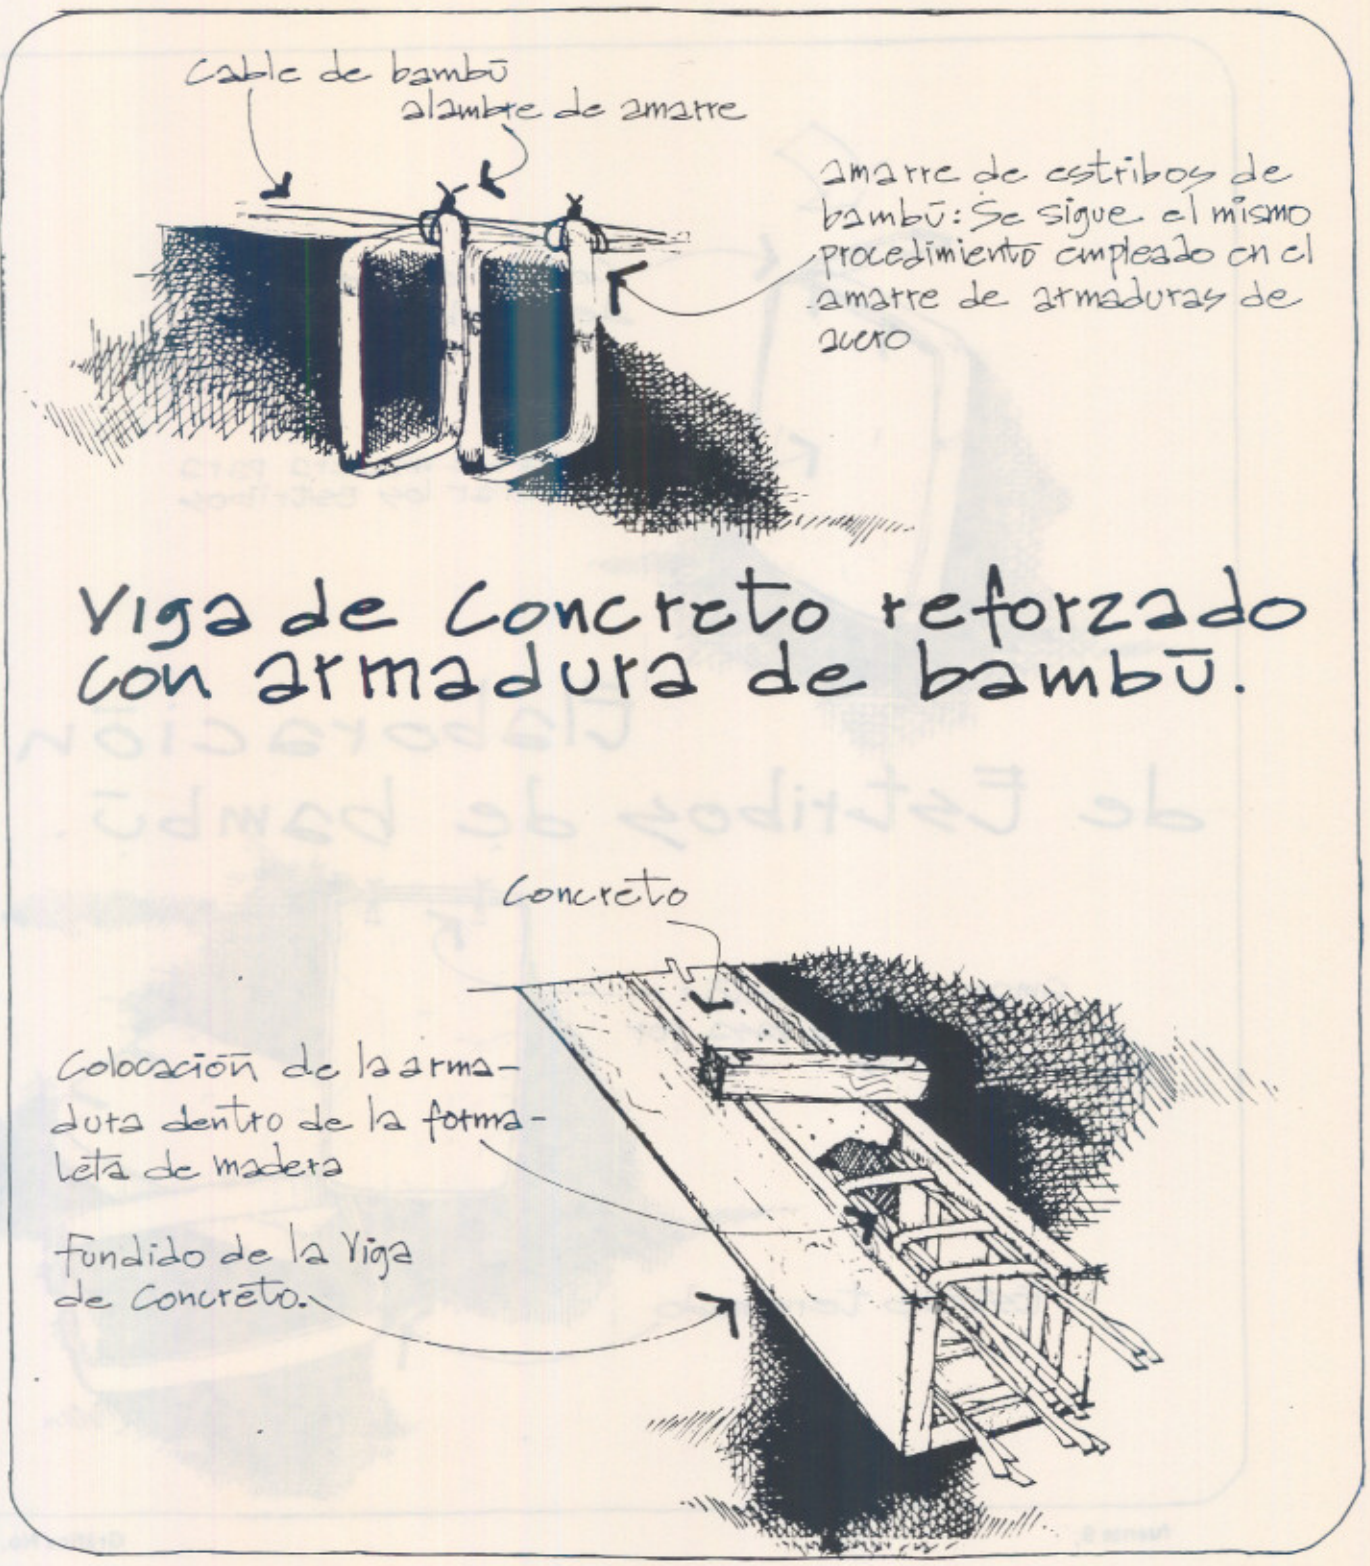 Cable de bambū
alambre de amarre
amarre de estribos de
bambū: Se sigue el mismo
procedimiento empleado en el
amarre de armaduras de
acero
Viga de Concreto reforzado
con armadura de bambū.
Concreto
Colocación de la arma-
dura dentro de la forma-
leta de madera
fundido de la Viga
de Concreto.